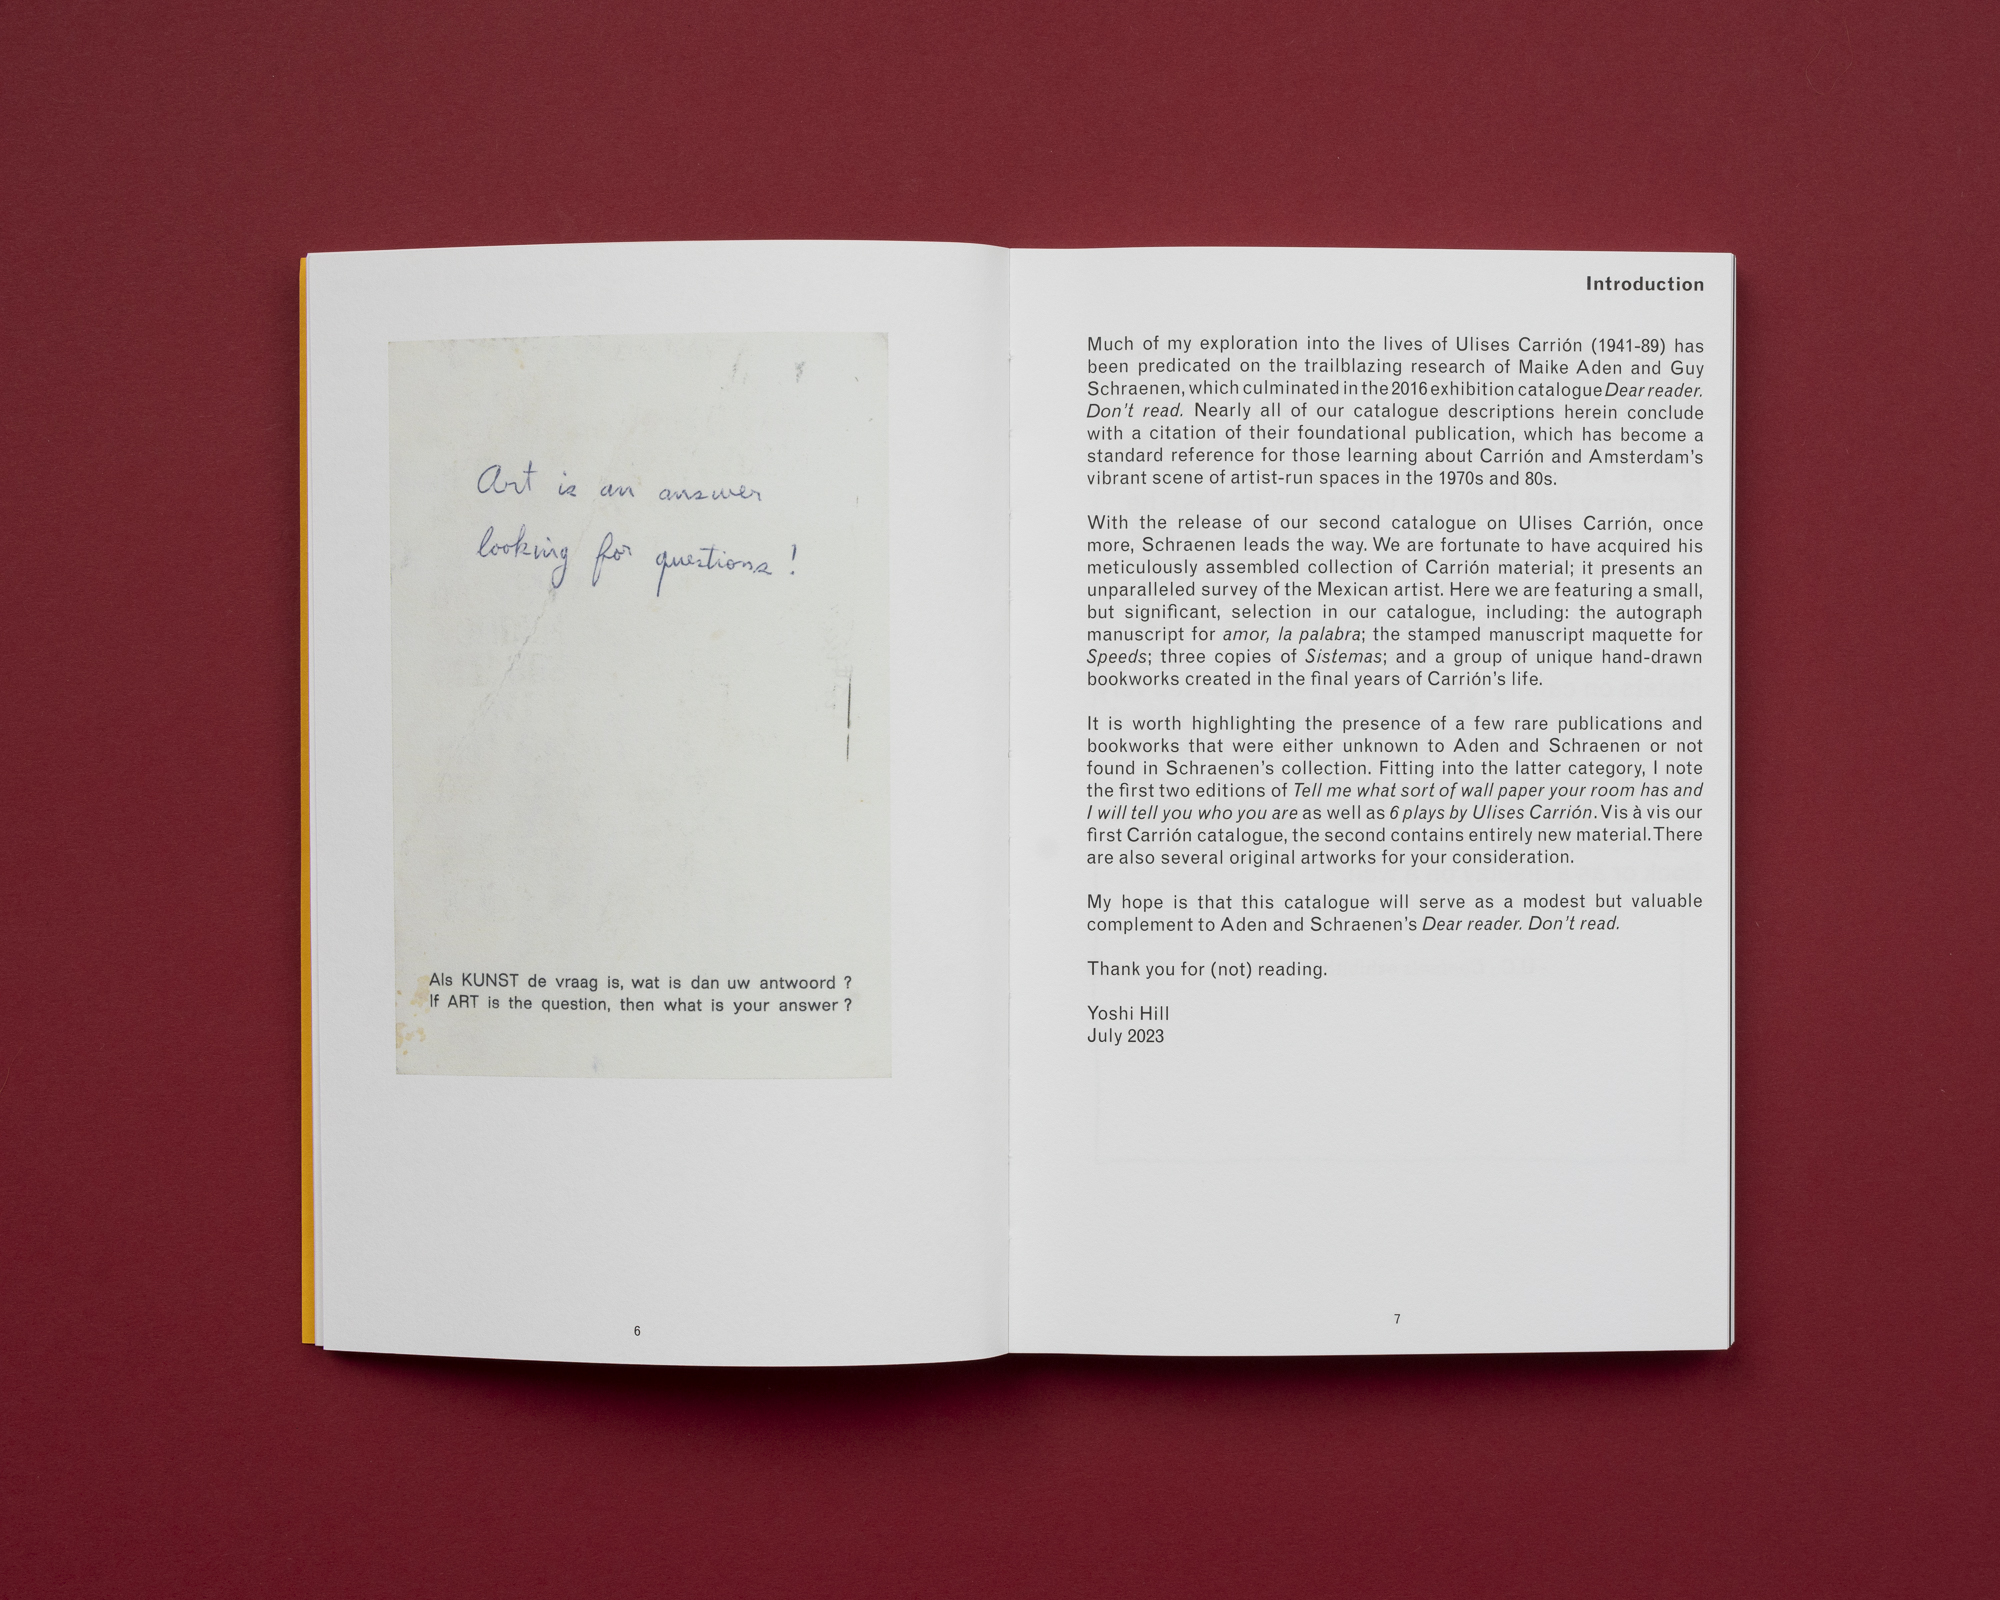 Art is an answer
looking for questions!
Als KUNST de vraag is, wat is dan uw antwoord ?
If ART is the question, then what is your answer ?
6
Introduction
Much of my exploration into the lives of Ulises Carrión (1941-89) has
been predicated on the trailblazing research of Maike Aden and Guy
Schraenen, which culminated in the 2016 exhibition catalogue Dear reader.
Don't read. Nearly all of our catalogue descriptions herein conclude
with a citation of their foundational publication, which has become a
standard reference for those learning about Carrión and Amsterdam's
vibrant scene of artist-run spaces in the 1970s and 80s.
With the release of our second catalogue on Ulises Carrión, once
more, Schraenen leads the way. We are fortunate to have acquired his
meticulously assembled collection of Carrión material; it presents an
unparalleled survey of the Mexican artist. Here we are featuring a small,
but significant, selection in our catalogue, including: the autograph
manuscript for amor, la palabra; the stamped manuscript maquette for
Speeds; three copies of Sistemas; and a group of unique hand-drawn
bookworks created in the final years of Carrión's life.
It is worth highlighting the presence of a few rare publications and
bookworks that were either unknown to Aden and Schraenen or not
found in Schraenen's collection. Fitting into the latter category, I note
the first two editions of Tell me what sort of wall paper your room has and
I will tell you who you are as well as 6 plays by Ulises Carrión. Vis à vis our
first Carrión catalogue, the second contains entirely new material. There
are also several original artworks for your consideration.
My hope is that this catalogue will serve as a modest but valuable
complement to Aden and Schraenen's Dear reader. Don't read.
Thank you for (not) reading.
Yoshi Hill
July 2023
7